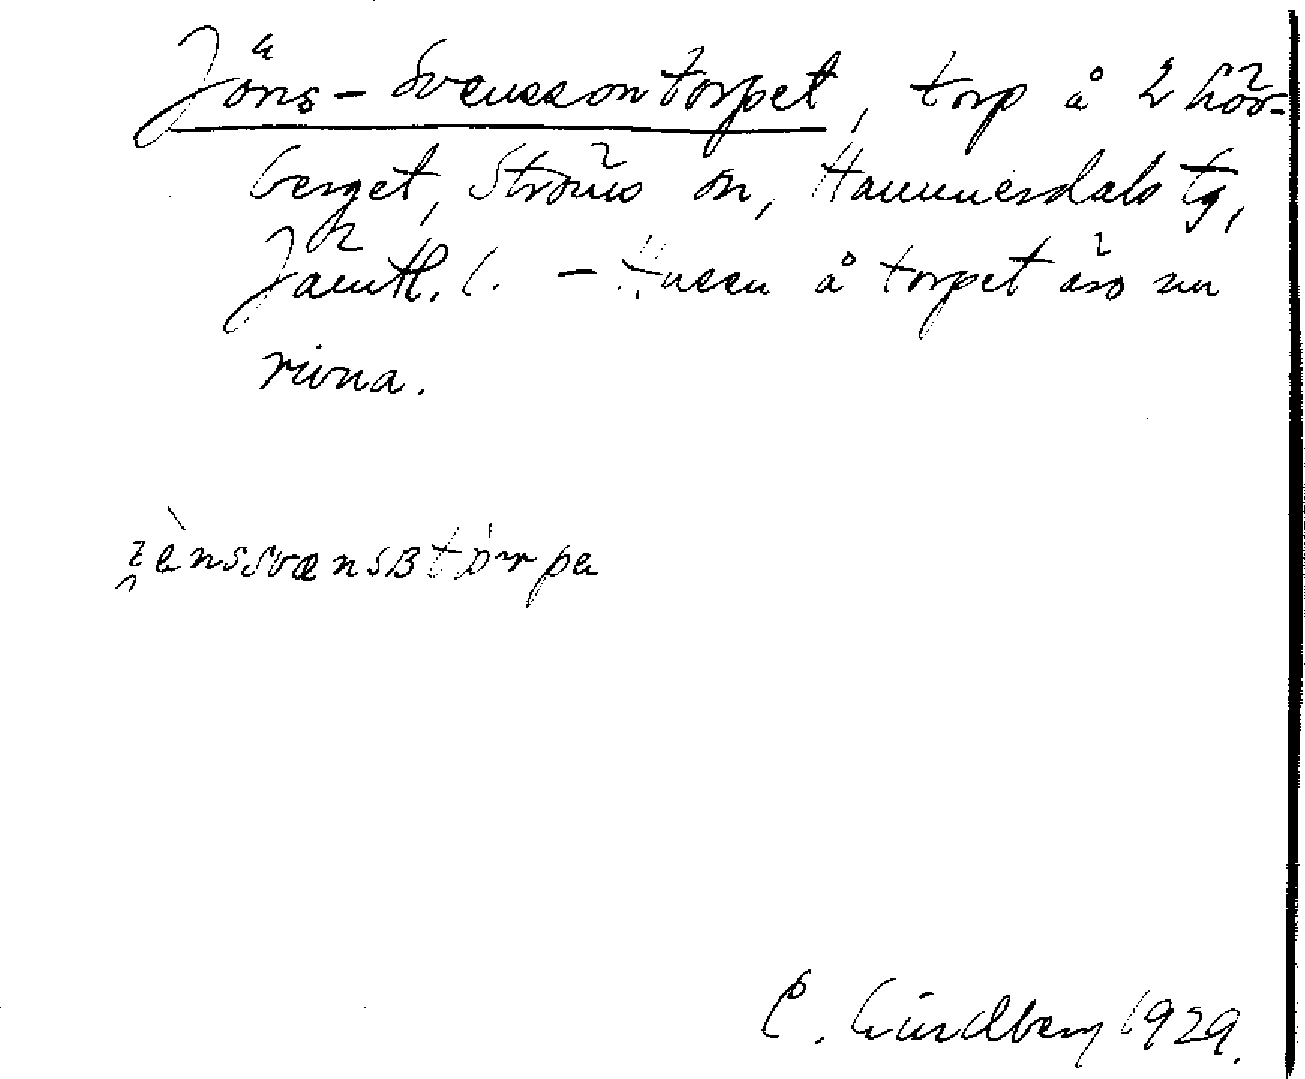 Jöns-Svenssontorpet, torp å 2 Lör-
berget, Ströms sn, Hammerdals tg,
Jämtl. l. – Husen å torpet äro nu
rivna.
C. Lindberg 1929.